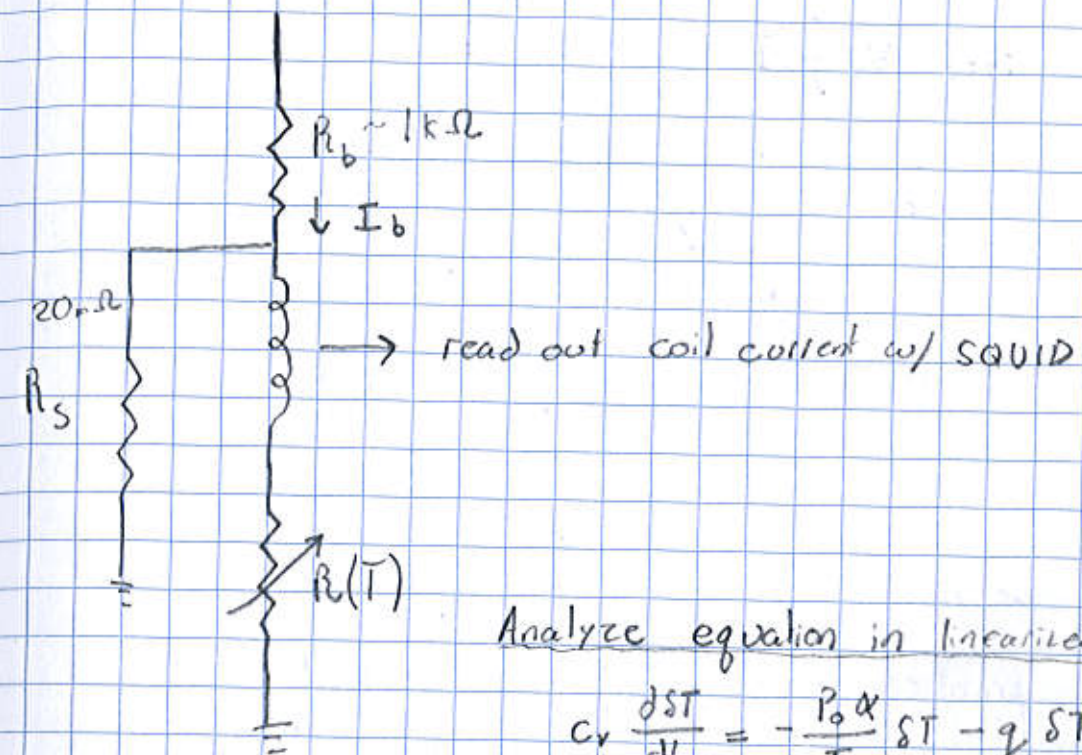 R_b ~ 1kΩ
↓ I_b
20mΩ
R_s
→ read out coil current w/ SQUID
R(T)
Analyze equation in
C_v dδT = - P_0 α δT - q δT